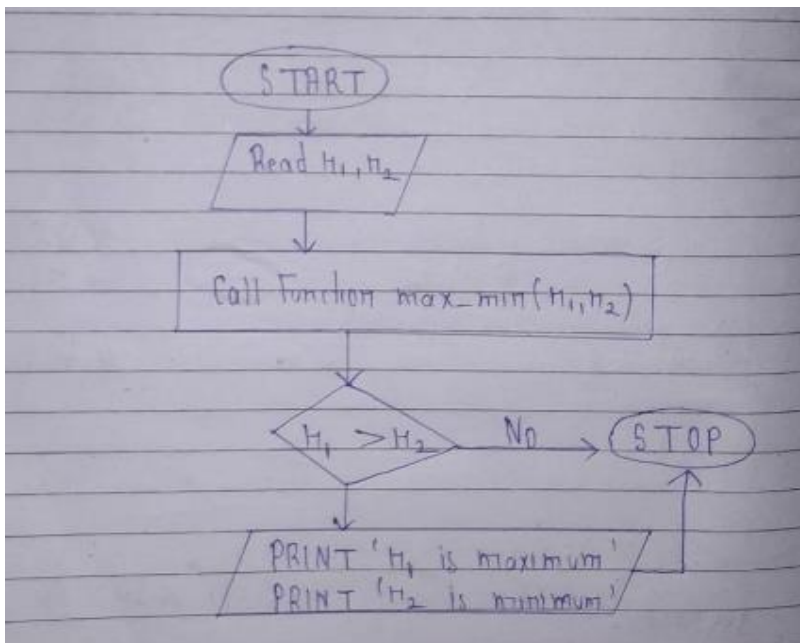 START
Read n₁, n₂
Call Function max_min(n₁, n₂)
n₁ > n₂
NO
STOP
PRINT 'n₁ is maximum'
PRINT 'n₂ is minimum'